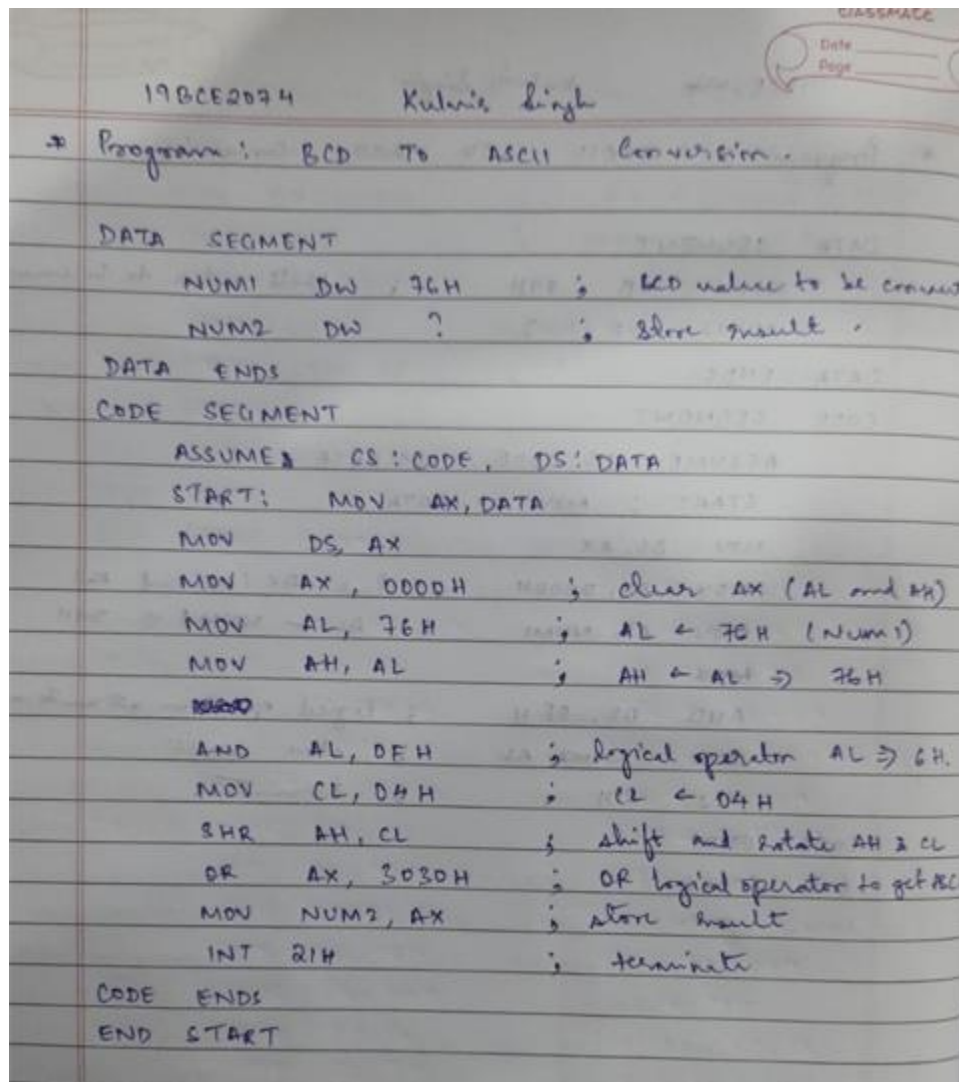 CLASSMATE
Date
Page
19BCE2074 Singh
* Program: BCD To ASCII Conversion.
DATA SEGMENT
NUM1 DW 76H ; BCD value to be
NUM2 DW ? ; Store result.
DATA ENDS
CODE SEGMENT
ASSUME CS: CODE, DS: DATA
START: MOV AX, DATA
MOV DS, AX
MOV AX, 0000H ; clear AX (AL and AH)
MOV AL, 76H ; AL ← 76H (Num1)
MOV AH, AL ; AH ← AL ⇒ 76H
AND AL, 0FH ; logical operator AL ⇒ 6H.
MOV CL, 04H ; CL ← 04H
SHR AH, CL ; shift and rotate AH & CL
OR AX, 3030H ; OR logical operator to get
MOV NUM2, AX ; store result
INT 21H ; terminate
CODE ENDS
END START